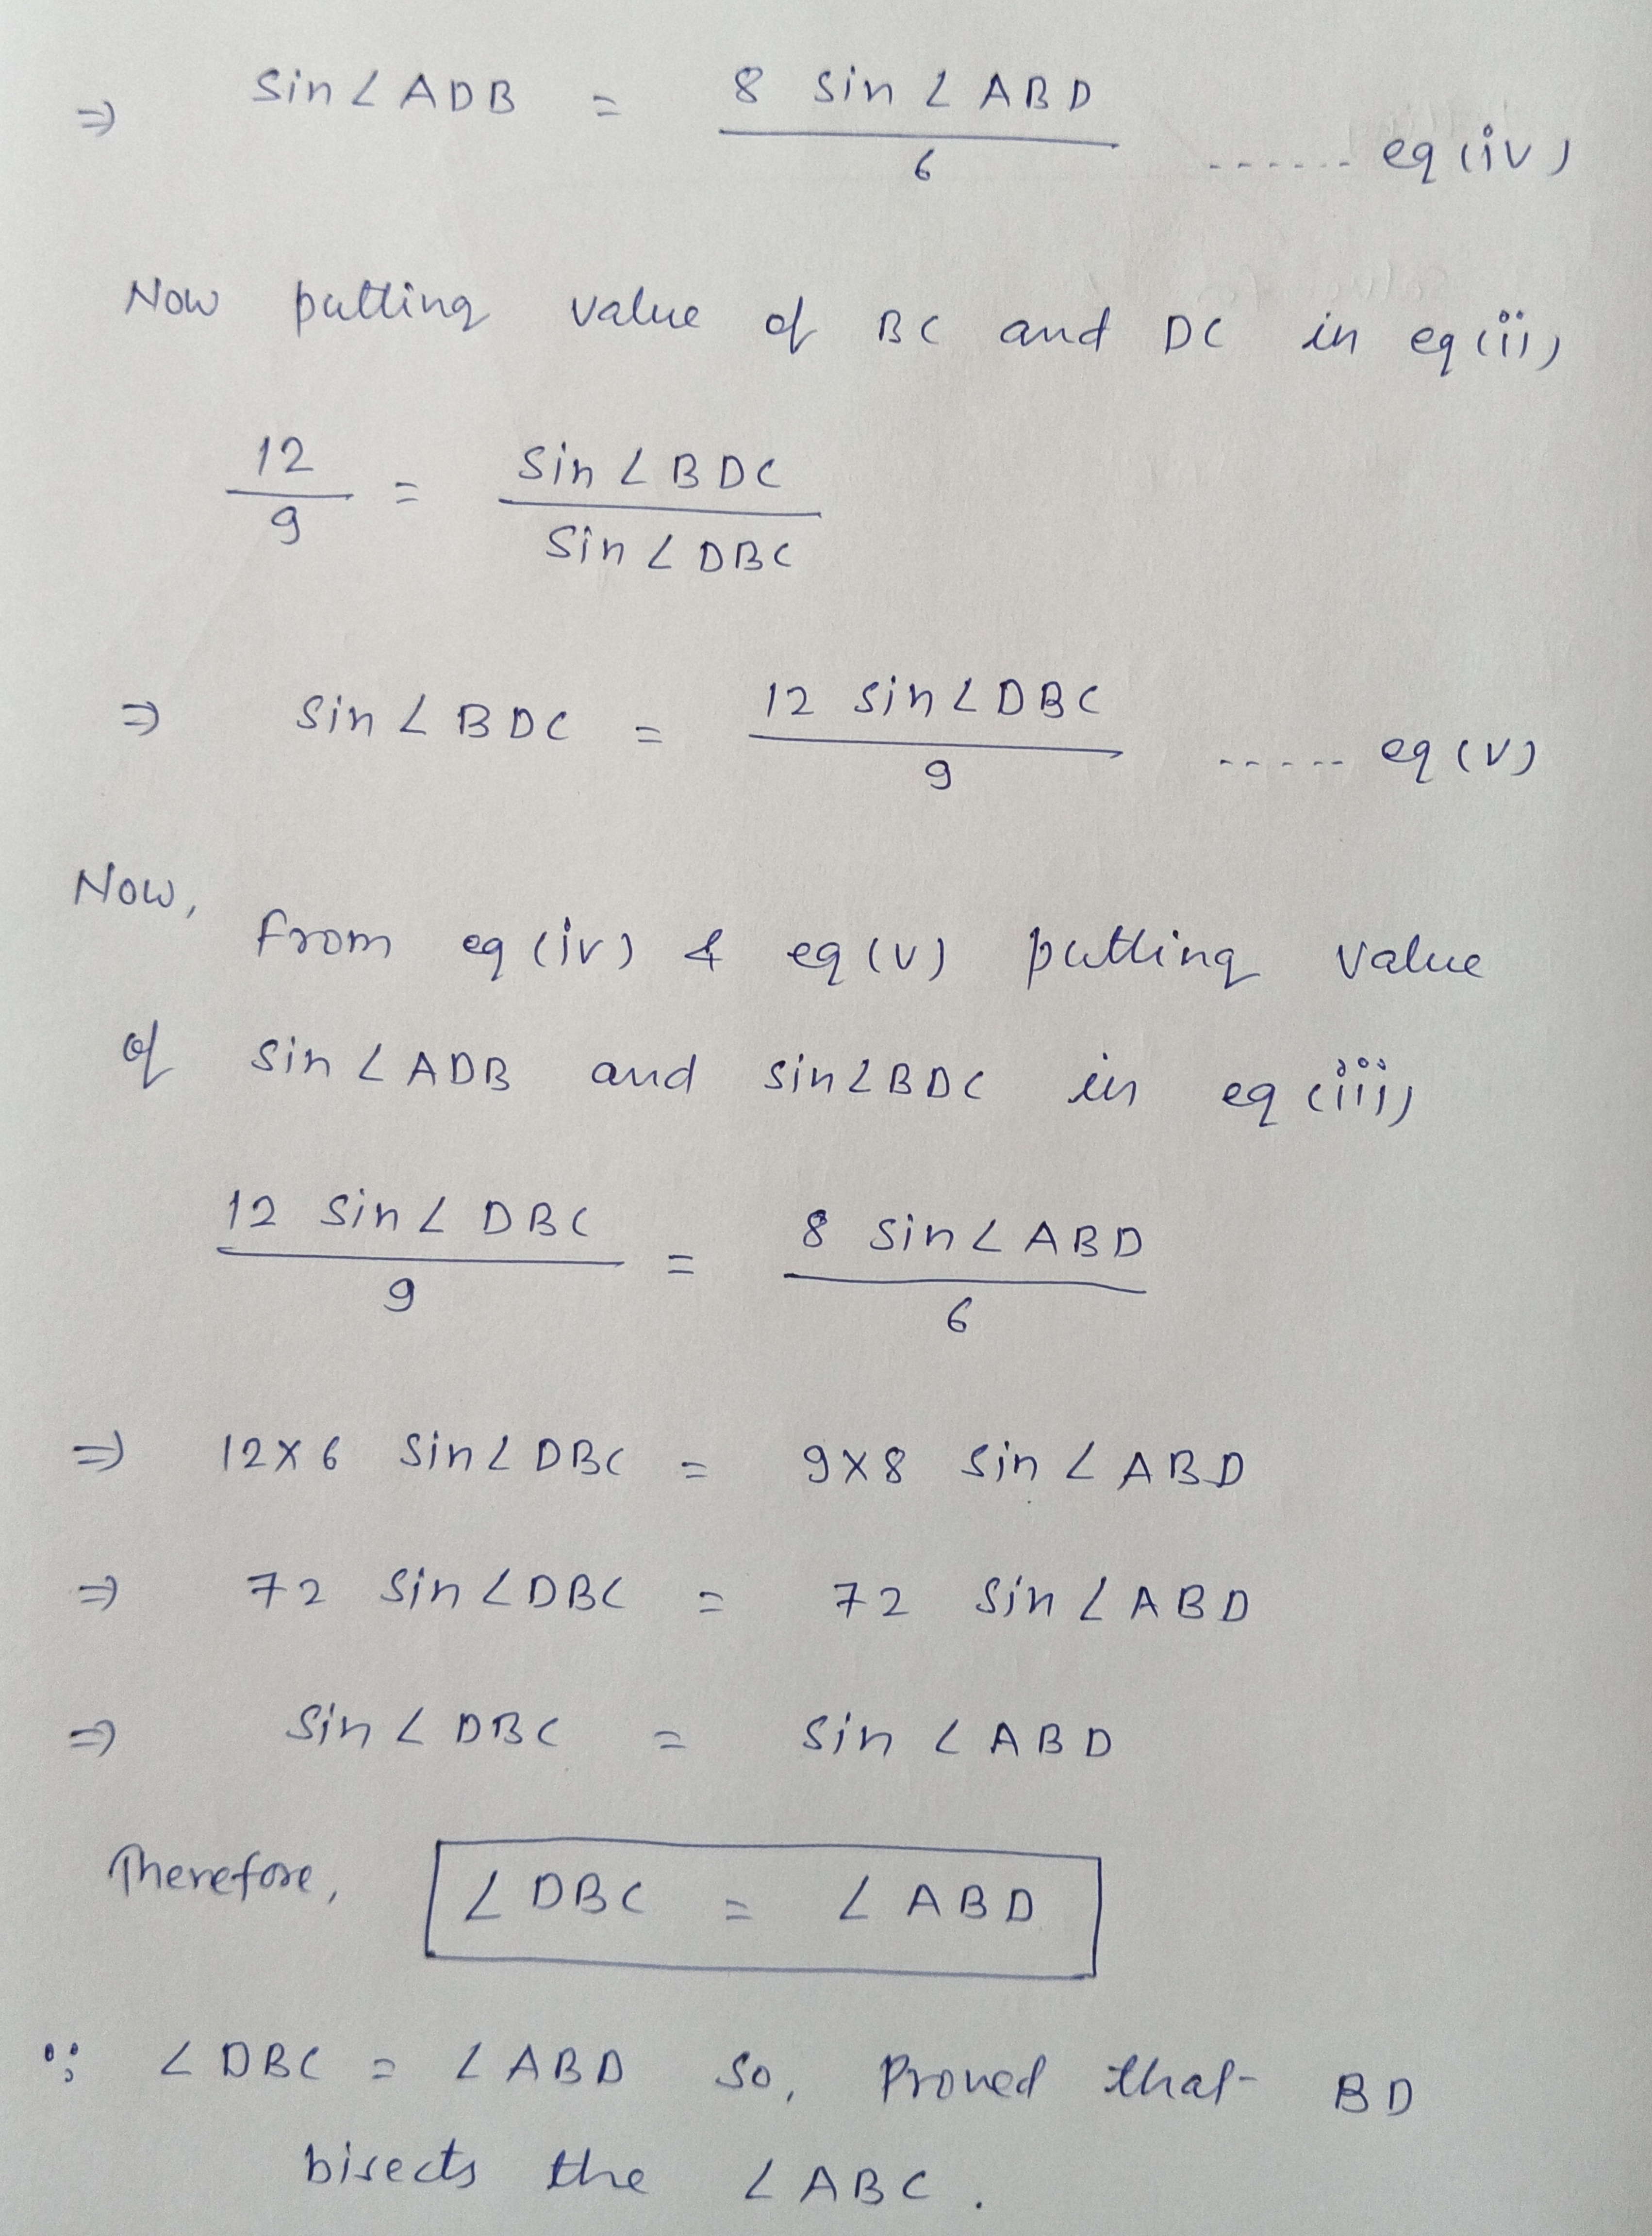 ⇒ Sin∠ADB = 8 Sin∠ABD / 6 ...... eq(iv)
Now putting value of BC and DC in eq(ii)
12 / 9 = Sin∠BDC / Sin∠DBC
⇒ Sin∠BDC = 12 Sin∠DBC / 9 ..... eq(v)
Now, from eq(iv) & eq(v) putting value
of Sin∠ADB and Sin∠BDC in eq(iii)
12 Sin∠DBC / 9 = 8 Sin∠ABD / 6
⇒ 12×6 Sin∠DBC = 9×8 Sin∠ABD
⇒ 72 Sin∠DBC = 72 Sin∠ABD
⇒ Sin∠DBC = Sin∠ABD
Therefore, ∠DBC = ∠ABD
∵ ∠DBC = ∠ABD So, Proved that BD
bisects the ∠ABC.